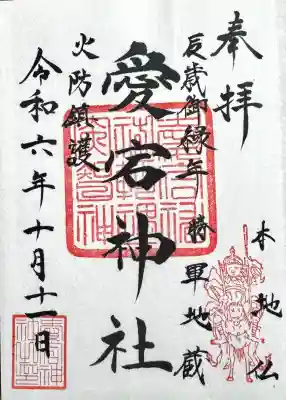 奉拝
本地仏
辰歳御縁年
将軍地蔵
愛宕神社
火防鎮護
令和六年十月十一日